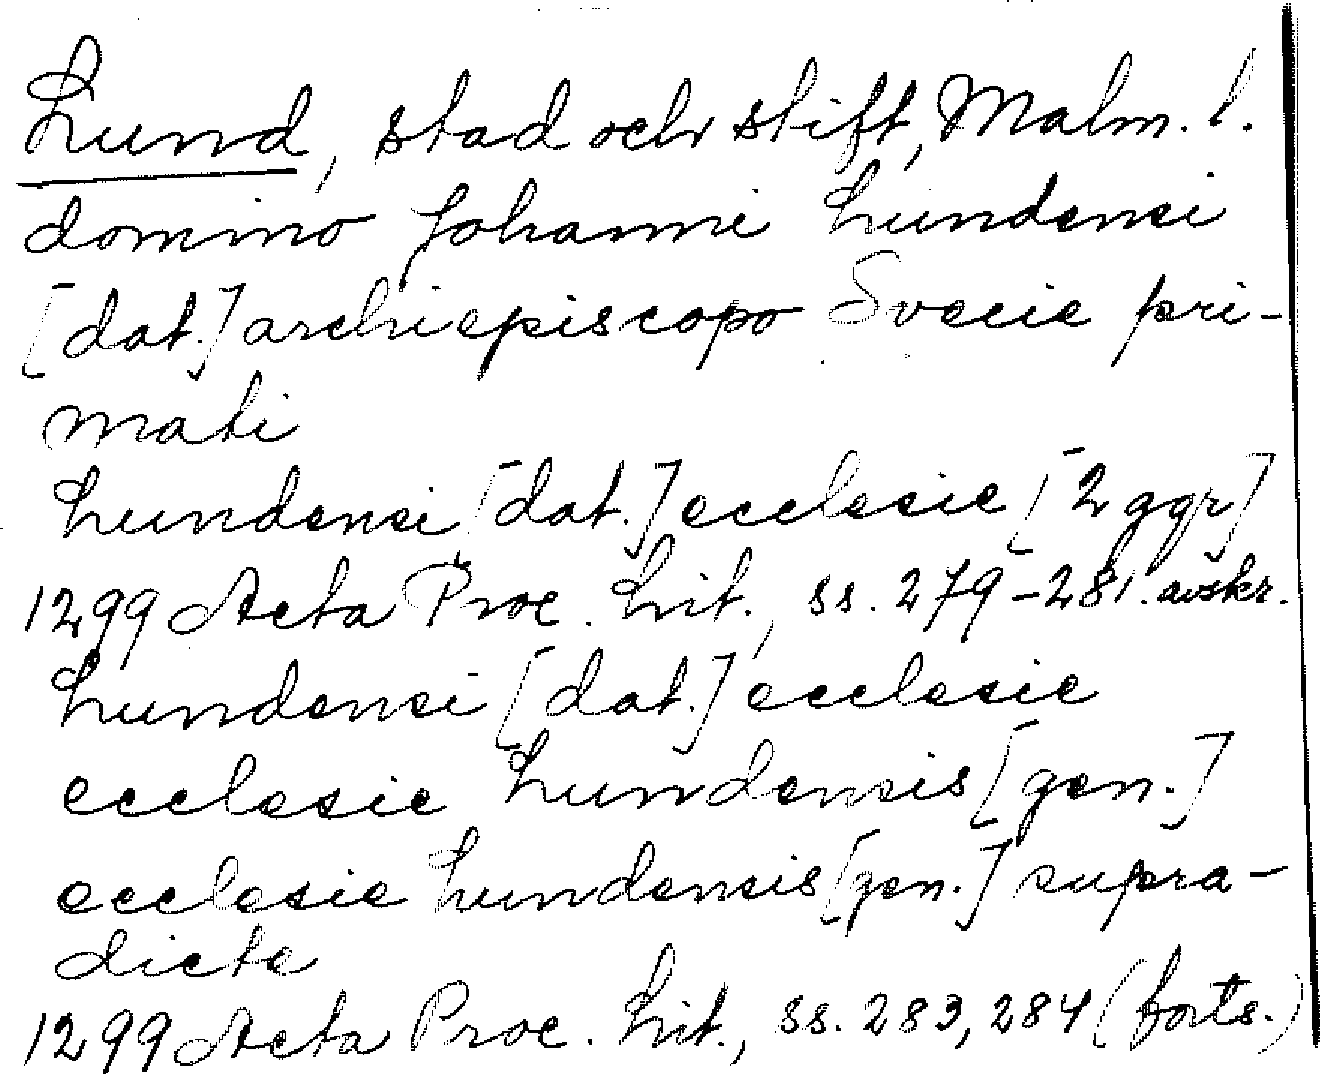 Lund, stad och stift, Malm. l.
domino Johanni Lundensi
[dat.] archiepiscopo Svecie pri-
mati
Lundensi [dat.] ecclesie [2 ggr]
1299 Acta Proc. Lit., ss. 279-281. avskr.
Lundensi [dat.] ecclesie
ecclesie Lundensis [gen.]
ecclesie Lundensis [gen.] supra-
dicte
1299 Acta Proc. Lit., ss. 283, 284 (forts.)